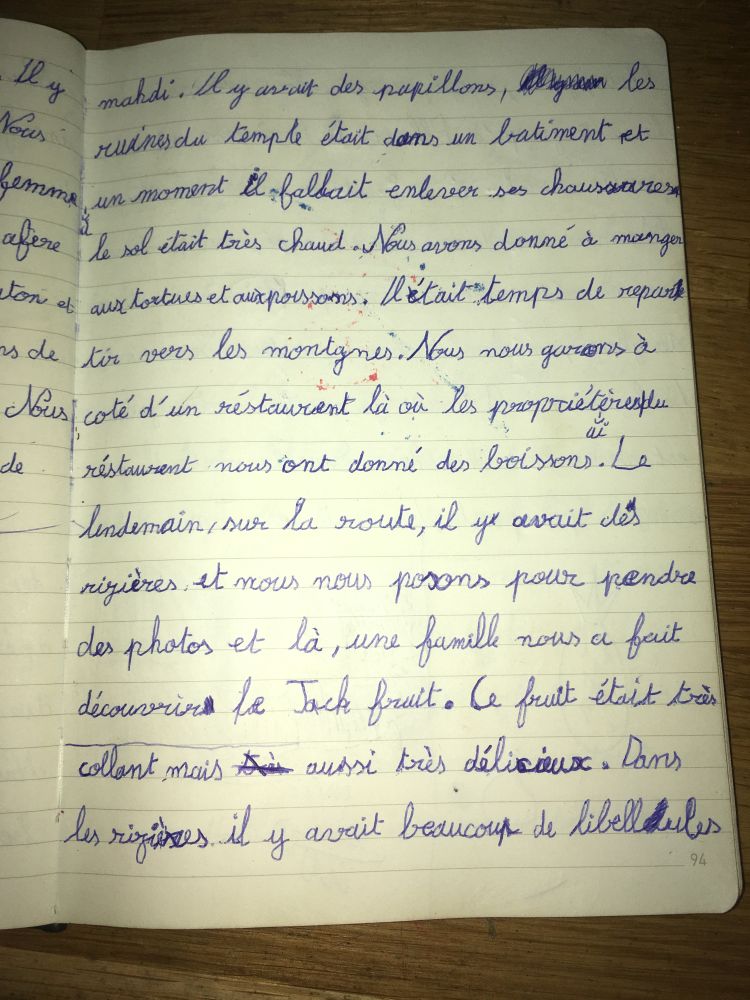 Il y
Nous
femme
afere
ton et
ns de
Nous
de
mahdi. Il y avait des papillons, les
ruines du temple était dans un batiment et
un moment il fallait enlever ses chaussures
le sol était très chaud. Nous avons donné à manger
aux tortues et aux poissons. Il était temps de repar
tir vers les montgnes. Nous nous garons à
coté d'un réstaurent là où les propriétères du
ai
réstaurent nous ont donné des boissons. Le
lendemain, sur la route, il y avait des
rizières et nous nous posons pour pendre
des photos et là, une famille nous a fait
découvrir le Jack fruit. Ce fruit était très
collant mais très aussi très délicieux. Dans
les rizières il y avait beaucoup de libellules
94